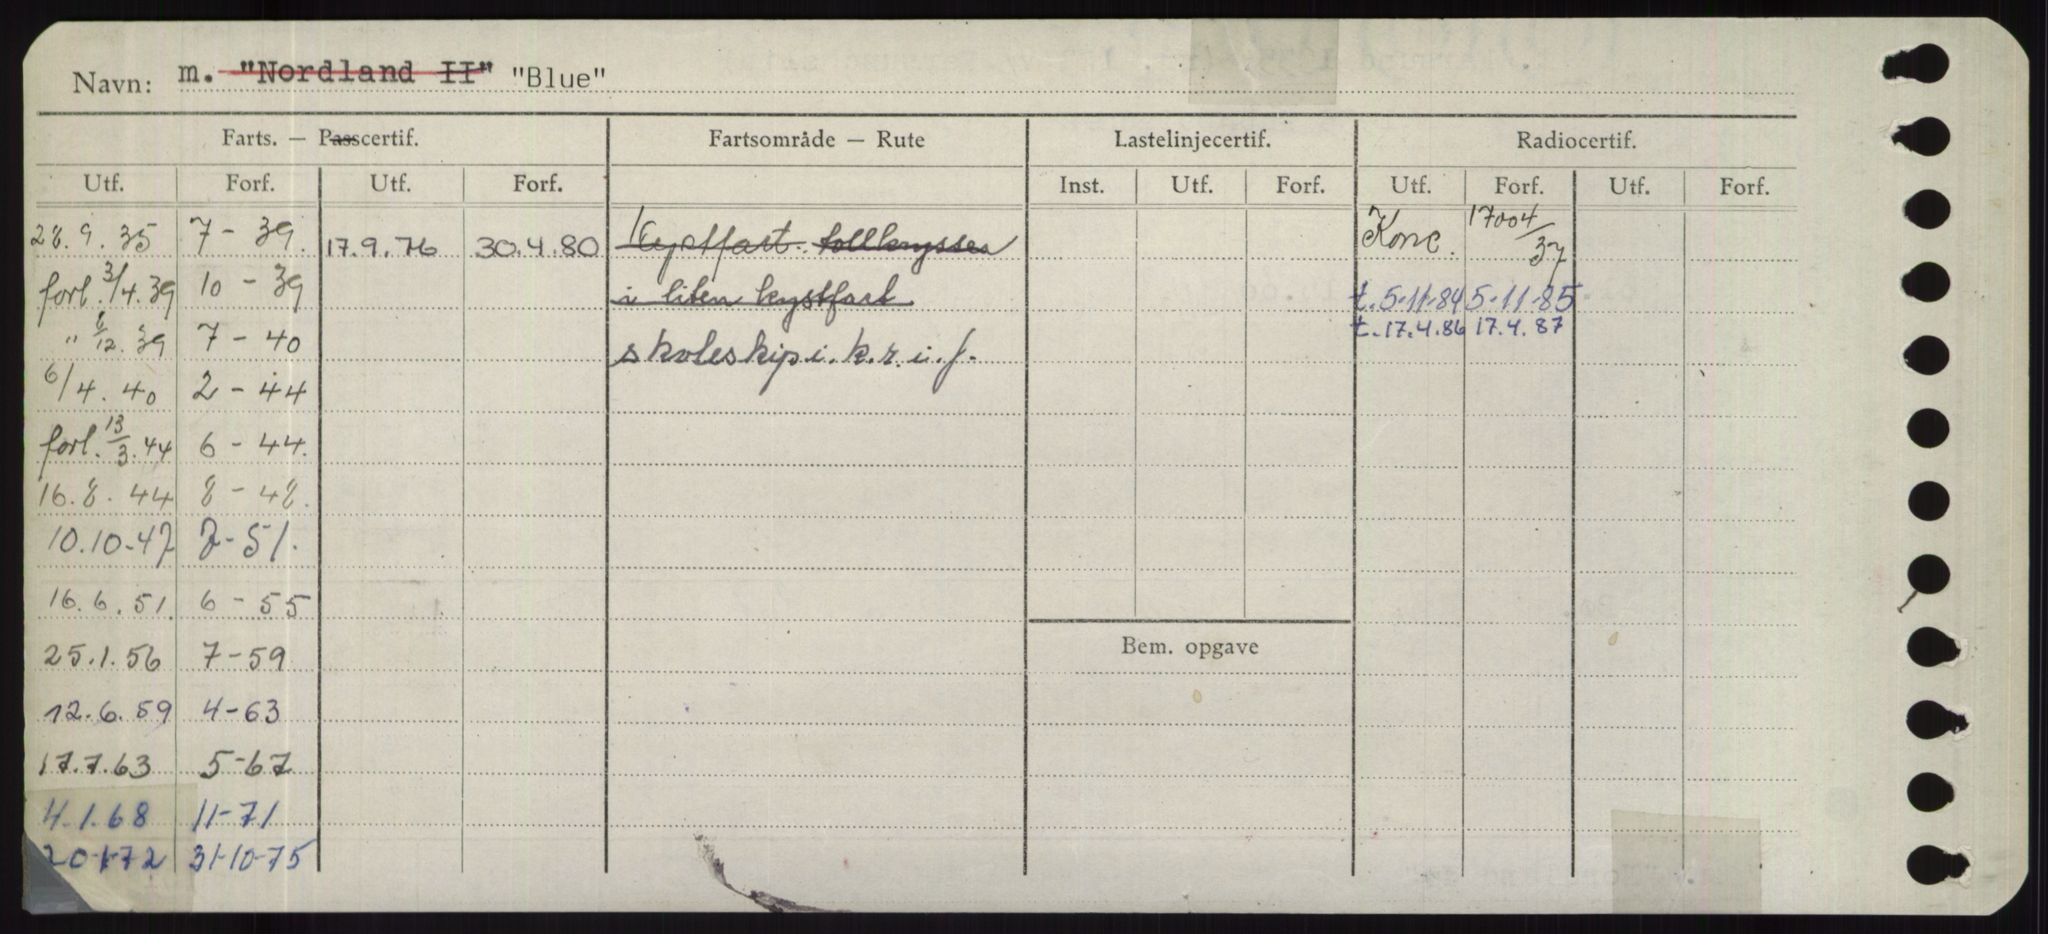 Navn: m. "Nordland II" "Blue"
Farts. — Passcertif. Fartsområde — Rute Lastelinjecertif. Radiocertif.
Utf. Forf. Utf. Forf. Inst. Utf. Forf. Utf. Forf. Utf. Forf.
28.9.35 7-39. 17.9.76 30.4.80 Kystfart. tollkrysser Konc. 17004/37
forl. 3/4.39 10-39 i liten kystfart t. 5-11-84 5-11-85
" 8/12.39 7-40 skoleskip i. k. r. i. f. t. 17.4.86 17.4.87
6/4.40 2-44
forl. 13/3.44 6-44.
16.8.44 8-48.
10.10-47 7-51.
16.6.51. 6-55
25.1.56 7-59 Bem. opgave
12.6.59 4-63
17.7.63 5-67
4.1.68 11-71
20-1-72 31-10-75